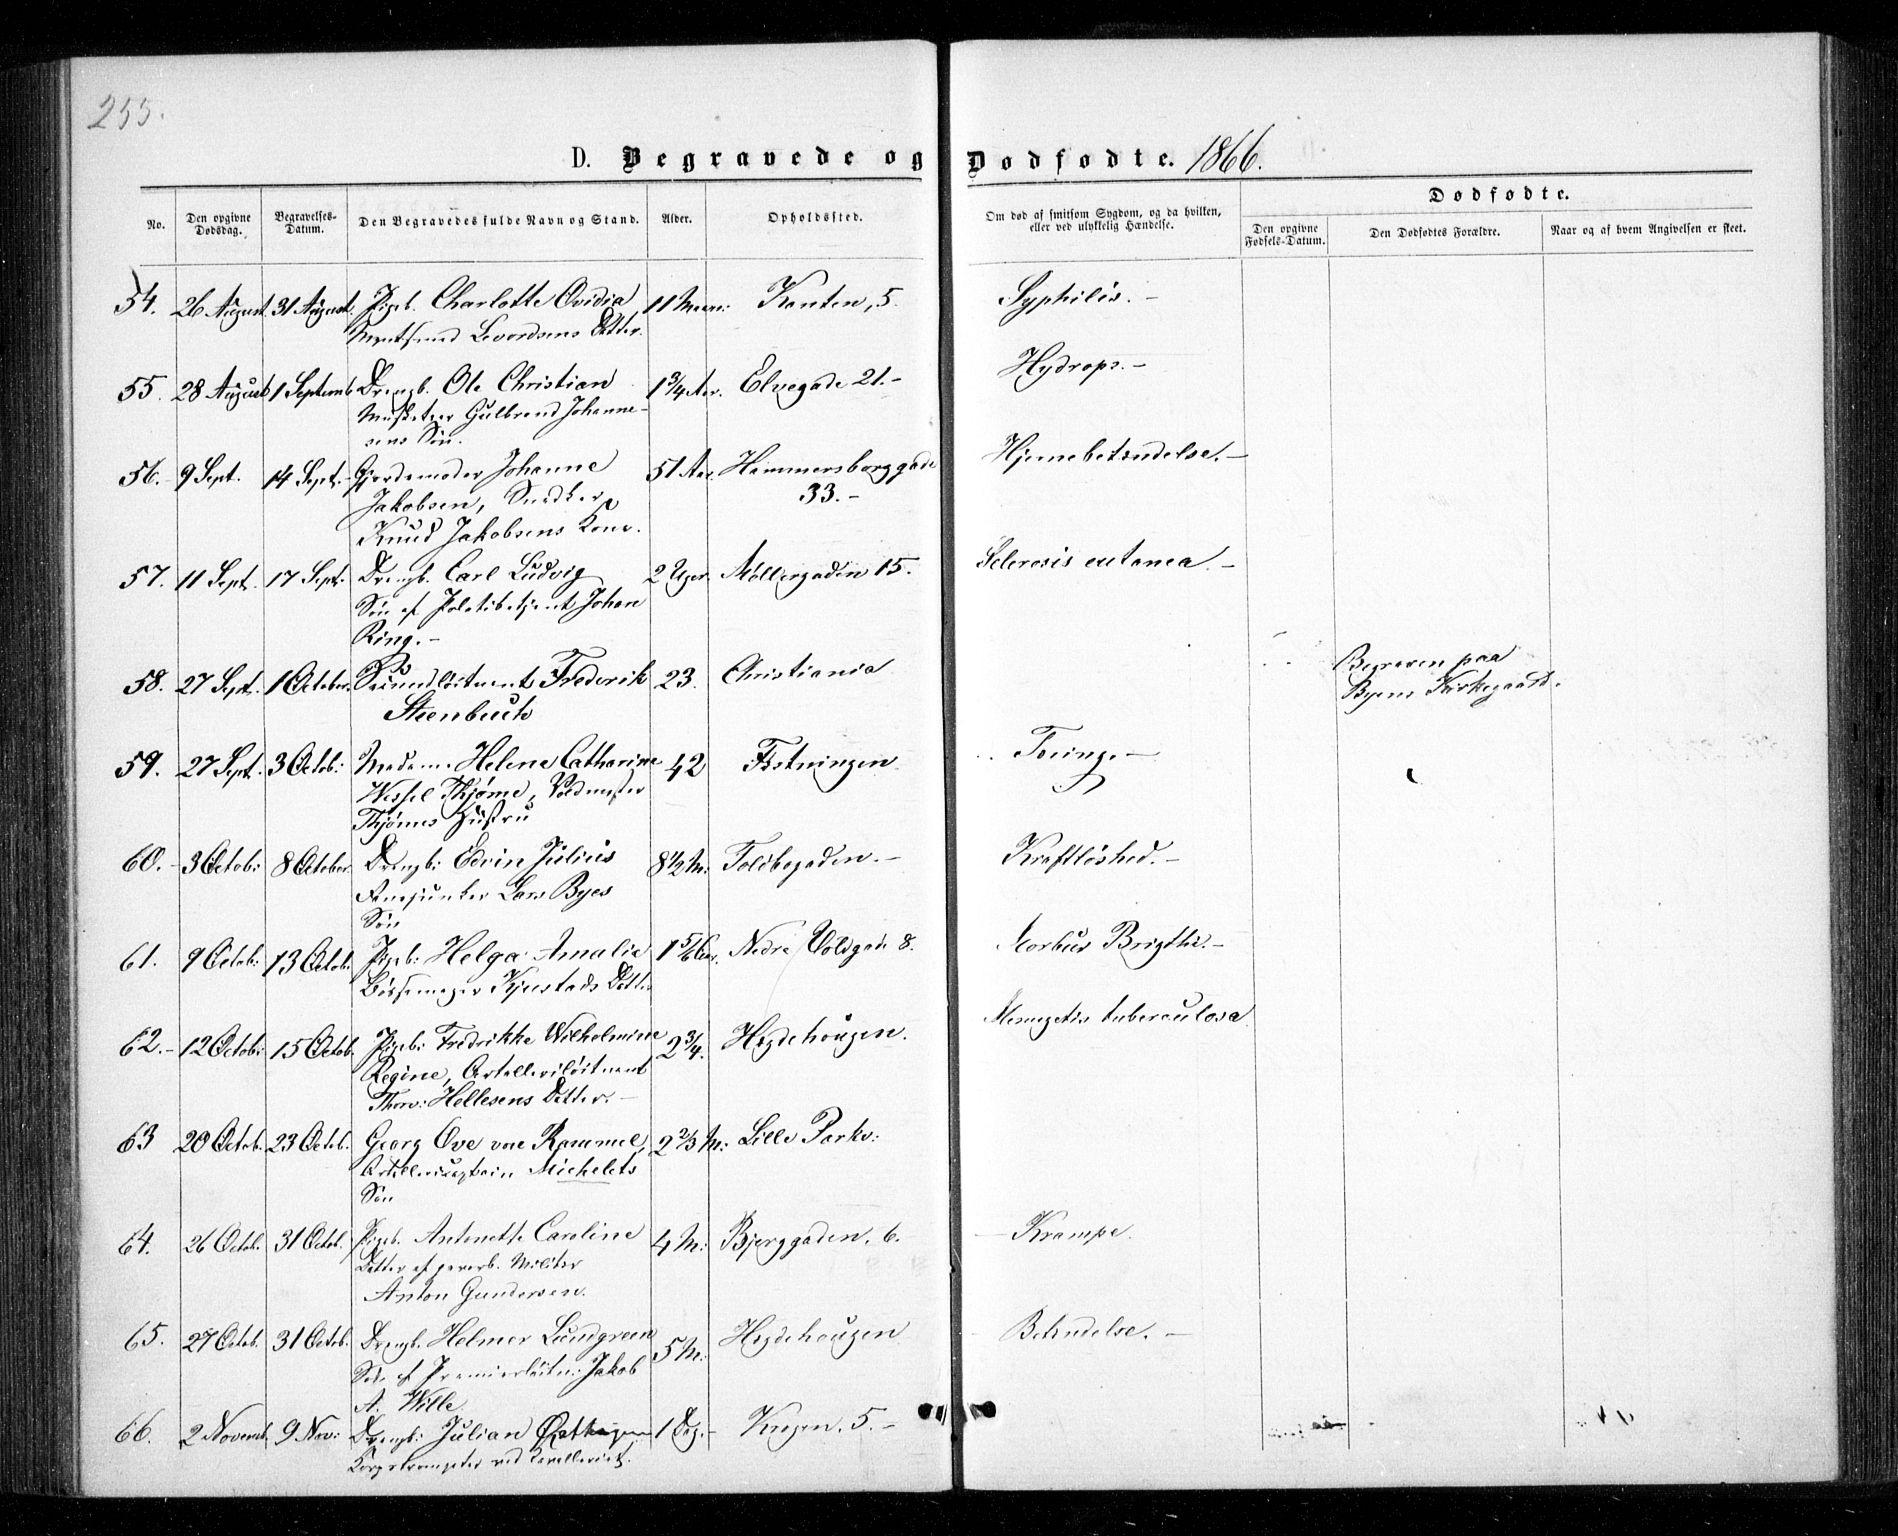 255.
D. Begravede og Dødfødte. 1866.
No.
Den opgivne Dødsdag.
Begravelses-Datum.
Den Begravedes fulde Navn og Stand.
Alder.
Opholdssted.
Om død af smitsom Sygdom, og da hvilken,
eller ved ulykkelig Hændelse.
Dødfødte.
Den opgivne Fødsels-Datum.
Den Dødfødtes Forældre.
Naar og af hvem Angivelsen er skeet.
54. 26 August 31 August. Pigeb. Charlotte Ovidia 11 Maan: Kanten, 5. Syphilis. –
Datter.
55. 28 August 1 Septemb Drengb. Ole Christian 1 3/4 Aar. Elvegade 21. – Hydrops. –
Musketeer Gulbrand Johanne-
sens Søn.
56. – 9 Sept. 14 Sept. Gjordemoder Johanne 51 Aar. Hammersborggade Hjernebetændelse. –
Jakobsen, Snedker 33. –
Knud Jakobsens Kone.
57. 11 Sept. 17 Sept. Drengb. Carl Ludvig 2 Uger. Møllergaden 15. Sclerosis cutanea. –
Søn af Politibetjent Johan
Ring. –
58. 27 Sept. 1 October. Secundlöitnant Frederik 23. Christiania Begraven paa
Steenbuch Byens Kirkegaard.
59. 27 Sept. 3 Octob: Madame Helene Catharine 42 Fæstningen Tæring. –
Wessel Thjøme, Voldmester
Thjømes Hüstru
60. – 3 Octob: 8 October. Drengb: Edvin Julius 8 1/2 M: Toldbogaden. – Kraftløshed. –
Fanejunker Lars Byes
Søn
61. 9 Octob: 13 Octob. Pigeb: Helga Amalie 1 5/6 Aar. Nedre Voldgade 8. Morbus Brigthii. –
Bøssemager Kjustads Datter
62. – 12 Octob: 15 Octob. Pigeb: Fredrikke Wilhelmine 2 3/4. Hegdehougen. tuberculosa
Regine, Artillerilöitnant
Thorv: Hellesens Datter. –
63 20 Octob. 23 Octob. Georg Ove von Rommel, 2 2/3 M: Lille Parkv:
Artillericaptain Michelets
Søn
64. 26 Octob. 31 Octob. Pigeb. Antonette Caroline 4 M: Bjerggaden, 6. Krampe.
Datter af geverb. Militær
Anton Gundersen.
65. 27 Octob. 31 Octob. Drengb. Helmer Lundgreen 5 M: Hegdehougen Betændelse. –
Søn af Premierlöitn: Jakob
A. Wille
66. 2 Novemb. 9 Nov: Drengb: Julian 1 Dag. – Krogen, 5. –
Korpstrompeter ved Cavalleriet.